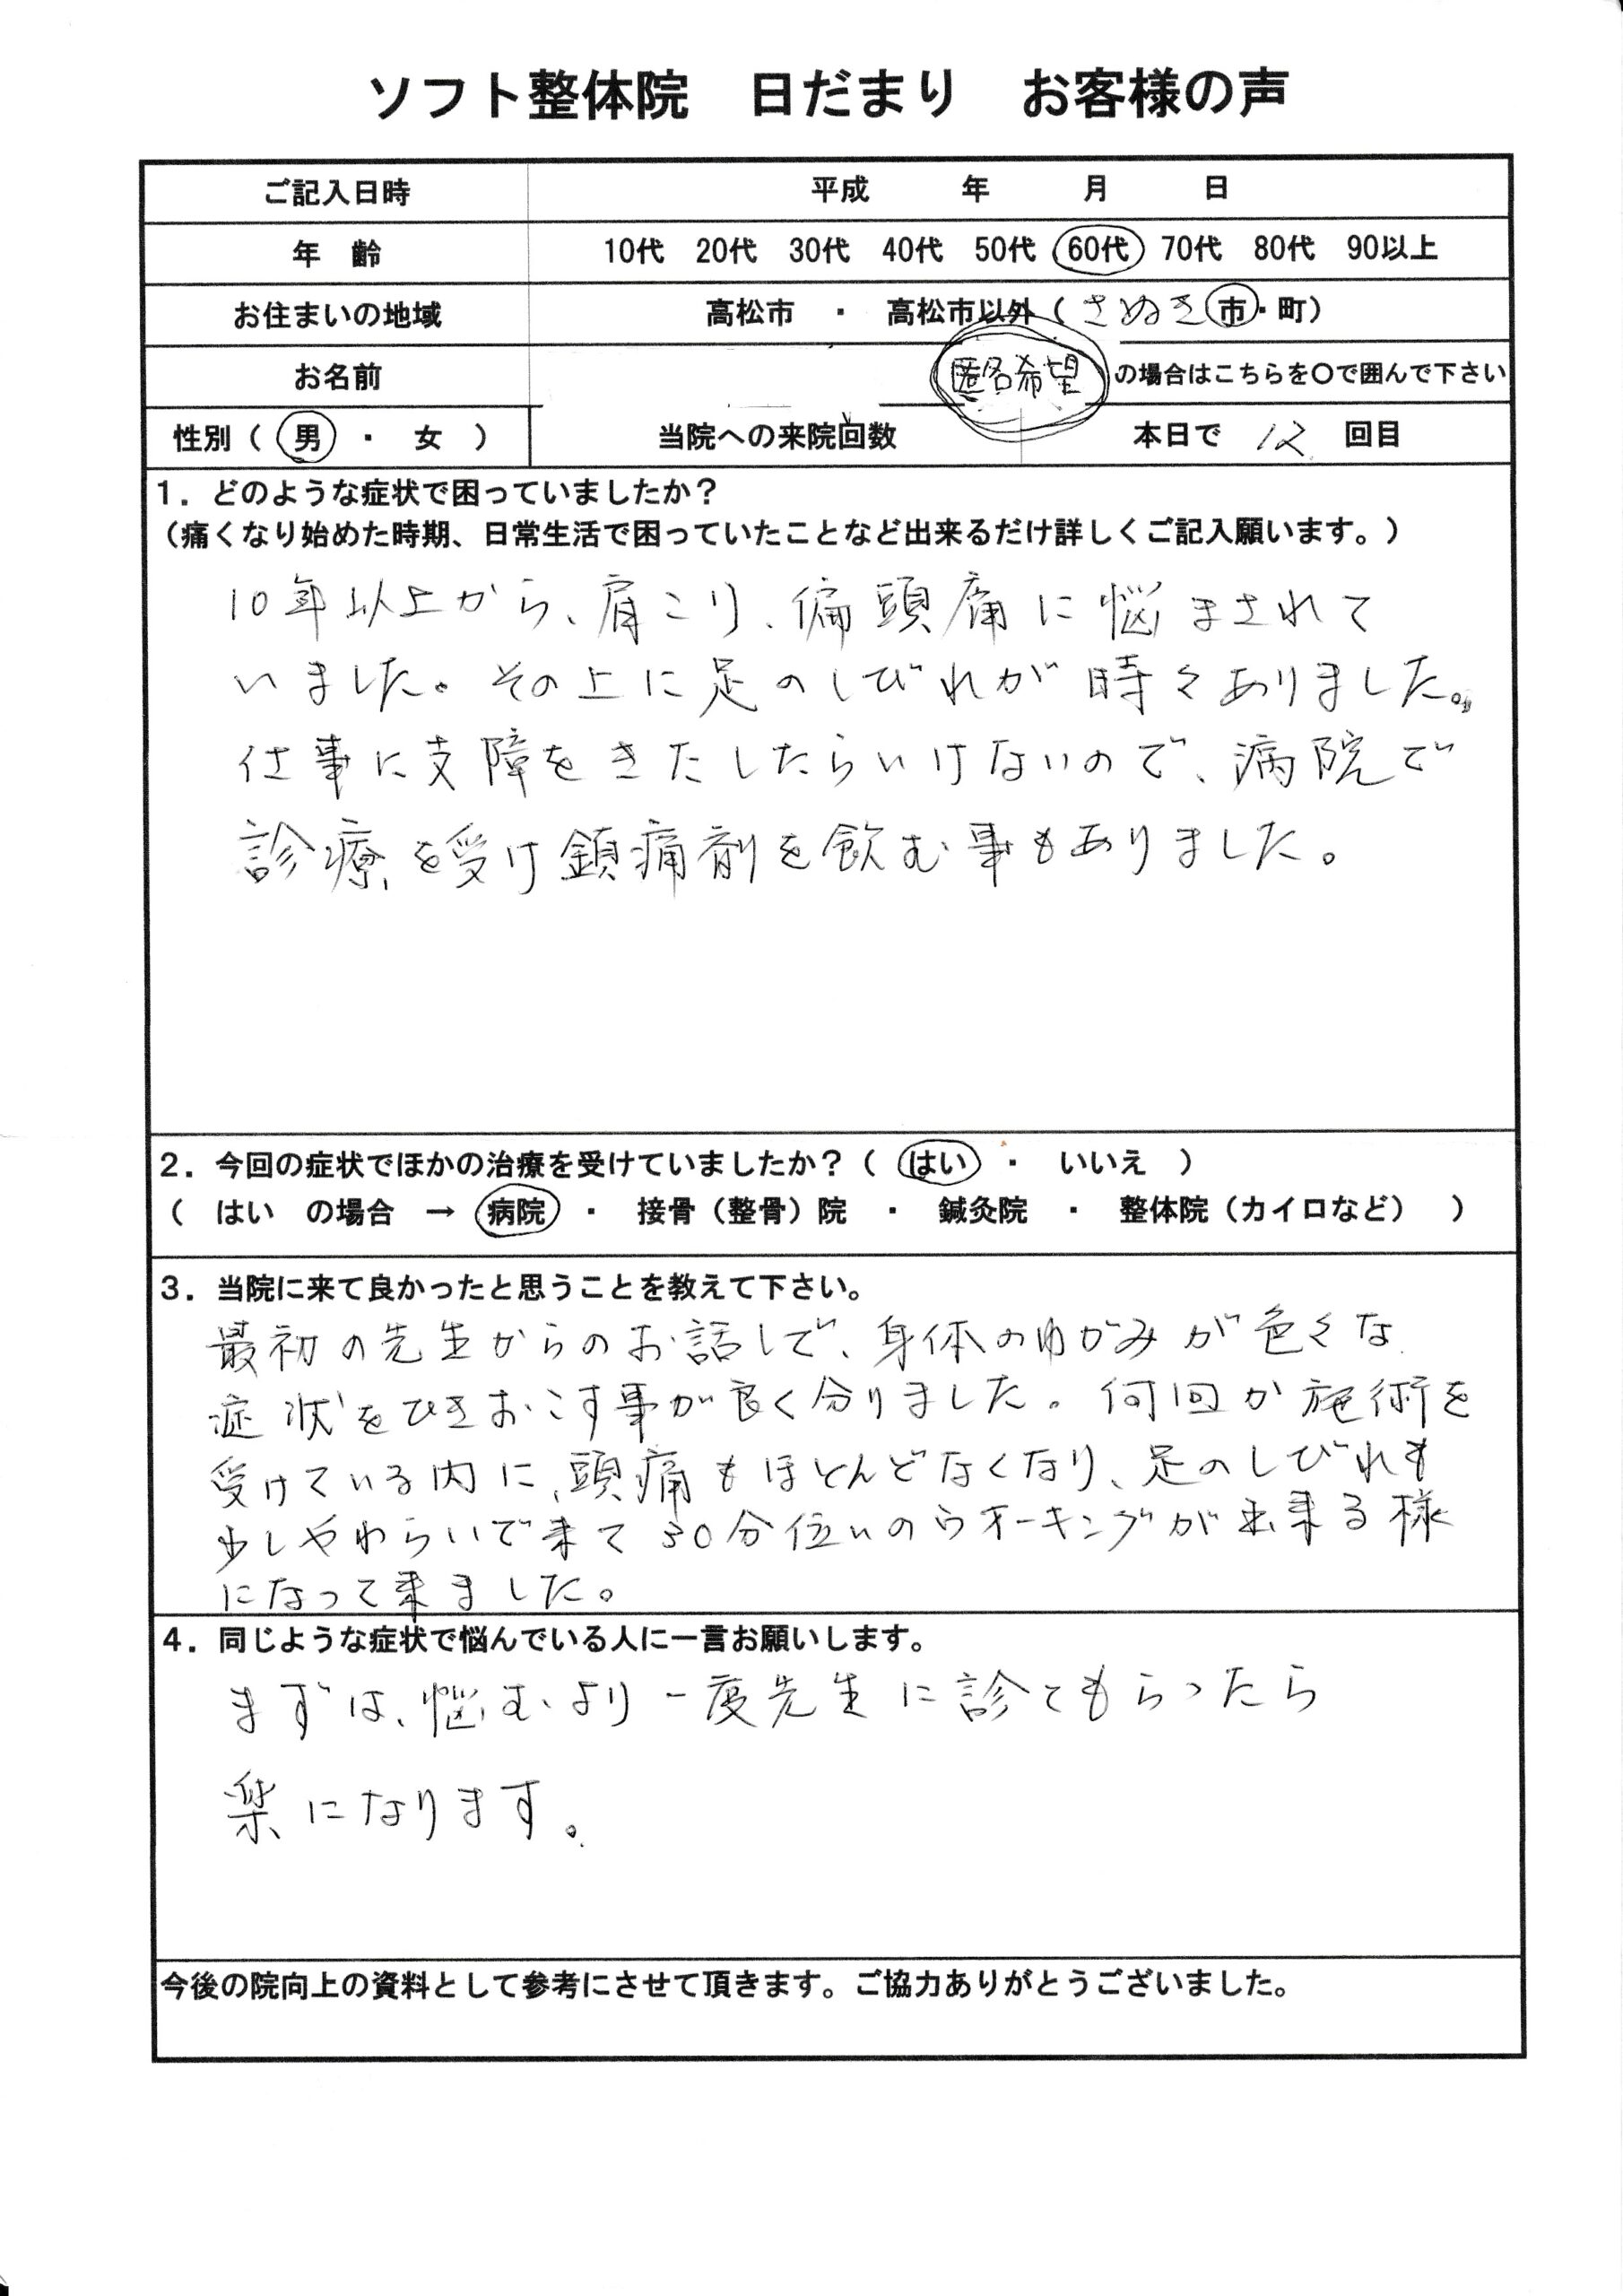 ソフト整体院 日だまり お客様の声
ご記入日時 平成 年 月 日
年 齢 10代 20代 30代 40代 50代 60代 70代 80代 90以上
お住まいの地域 高松市 ・ 高松市以外（さぬき市・町）
お名前 匿名希望の場合はこちらを〇で囲んで下さい
性別（ 男 ・ 女 ） 当院への来院回数 本日で 12 回目
1．どのような症状で困っていましたか？
（痛くなり始めた時期、日常生活で困っていたことなど出来るだけ詳しくご記入願います。）
10年以上から、肩こり、偏頭痛に悩まされて
いました。その上に足のしびれが時々ありました。
仕事に支障をきたしたらいけないので、病院で
診療を受け鎮痛剤を飲む事もありました。
2．今回の症状でほかの治療を受けていましたか？（ はい ・ いいえ ）
（ はい の場合 → 病院 ・ 接骨（整骨）院 ・ 鍼灸院 ・ 整体院（カイロなど） ）
3．当院に来て良かったと思うことを教えて下さい。
最初の先生からのお話しで、身体のゆがみが色々な
症状をひきおこす事が良く分りました。何回か施術を
受けている内に、頭痛もほとんどなくなり、足のしびれも
少しやわらいで来て30分位いのウオーキングが出来る様
になって来ました。
4．同じような症状で悩んでいる人に一言お願いします。
まずは、悩むより一度先生に診てもらったら
楽になります。
今後の院向上の資料として参考にさせて頂きます。ご協力ありがとうございました。